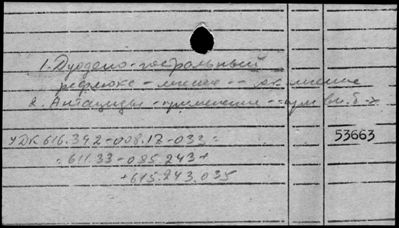 1. Дуодено-гастральный
рефлюкс - лечение
2. Антациды - применение - при
УДК 616.342-008.17-033:
53663
:611.33-085.243+
+615.243.035